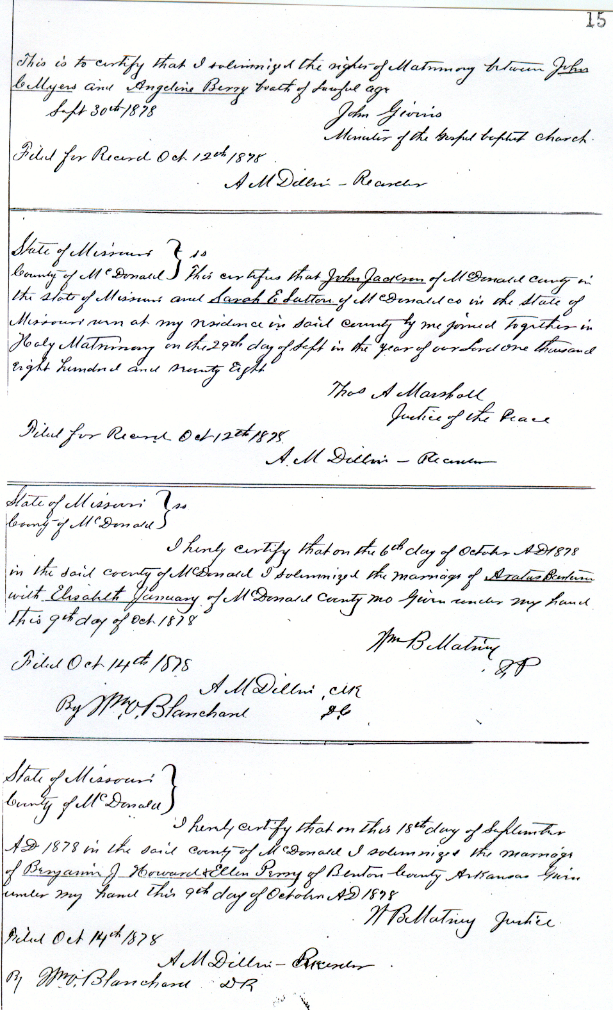 15
This is to certify that I solemnized the rights of Matrimony between John
C Myers and Angeline Berry boath of lawful age
Sept 30th 1878
John Givins
Minister of the Gospel baptist church.
Filed for Record Oct 12th 1878
A M Dillin - Recorder
State of Missouri } ss
County of McDonald } This certifies that John Jackson of McDonald county in
the state of Missouri and Sarah E Sutton of McDonald co in the State of
Missouri were at my residence in said county by me joined together in
Holy Matrimony on the 29th day of Sept in the year of our Lord one thousand
eight hundred and seventy Eight
Thos A Marshall
Justice of the Peace
Filed for Record Oct 12th 1878
A. M Dillin - Recorder
State of Missouri } ss
County of McDonald }
I hereby certify that on the 6th day of October AD 1878
in the said county of McDonald I solemnized the marriage of Aratus
with Elisabeth January of McDonald County Mo Given under my hand
this 9th day of Oct 1878
Wm B Matney
J P
Filed Oct 14th 1878
A M Dillin, Clk
By Wm O. Blanchard D C
State of Missouri }
County of McDonald }
I hereby certify that on this 18th day of September
AD 1878 in the said county of McDonald I solemnized the marriage
of Benjamin J Howard & Ellen Perry of Benton County Arkansas Given
under my hand this 9th day of October AD 1878
W B Matney Justice
Filed Oct 14th 1878
A M Dillin - Recorder
By Wm O. Blanchard D R